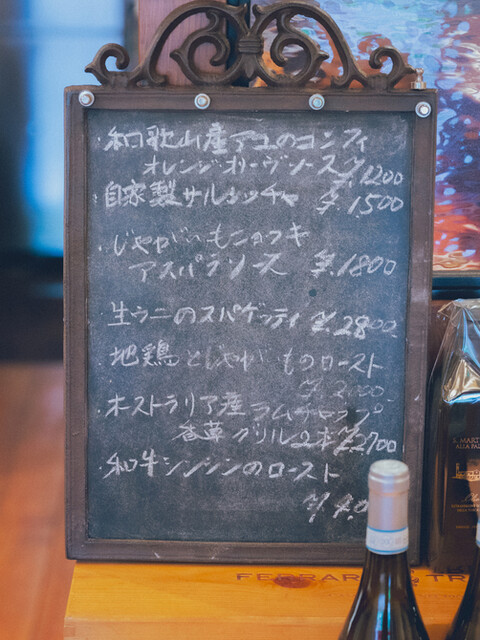 ・和歌山産アユのコンフィ
オレンジ・オリーヴソース ¥.1200
自家製サルシッチャ ¥.1500
・じゃがいものニョッキ
アスパラソース ¥.1800
・生ウニのスパゲッティ ¥.2800
地鶏とじゃがいものロースト
¥.2000
・オーストラリア産ラムチョップ
香草グリル2本 ¥2700
・和牛シンシンのロースト
S. MART
ALLA PA
FERRAR
TR